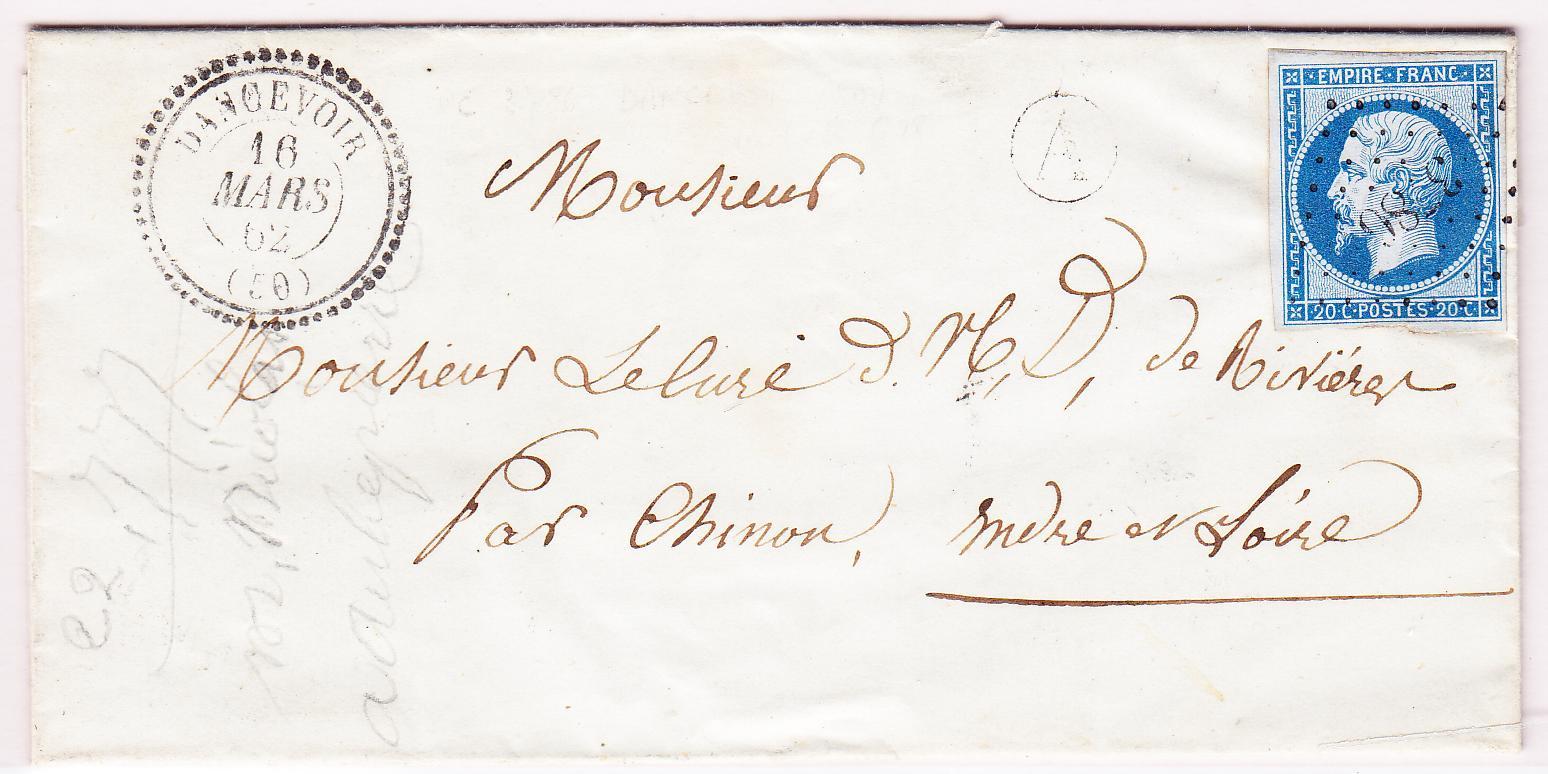 DANCEVOIR
16
MARS
62
(50)
A
EMPIRE · FRANC ·
20 · C · POSTES · 20 · C
Monsieur
Monsieur Le Curé d. N, D, de Rivières
Par Chinon, Indre et Loire